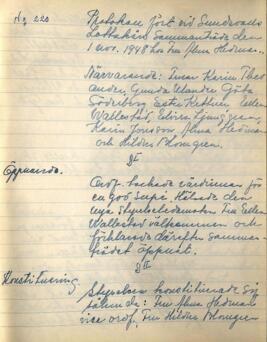 No 220
Protokoll fört vid Sundsvalls
Lottakårs Sammanträde den
1 nov. 1948 hos Fru Alma Hedman.
Närvarande: Fruar Karin Thel
ander, Gunda Ulander Göta
Söderberg Ester Kettner Ellen
Wallestad, Elvira Ljunggren,
Karin Jonsson, Alma Hedman
och Hildur Blomgren.
§ I
Öppnande.
Ordf. tackade värdinnan för
en god supé. Hälsade den
nya styrelseledamoten Fru Ellen
Wallestad välkommen och
förklarade därefter samman-
trädet öppnat.
§ II
Konstituering
Styrelsen konstituerade sig
sålunda: Fru Alma Hedman
vice ordf. Fru Hildur Blomgren